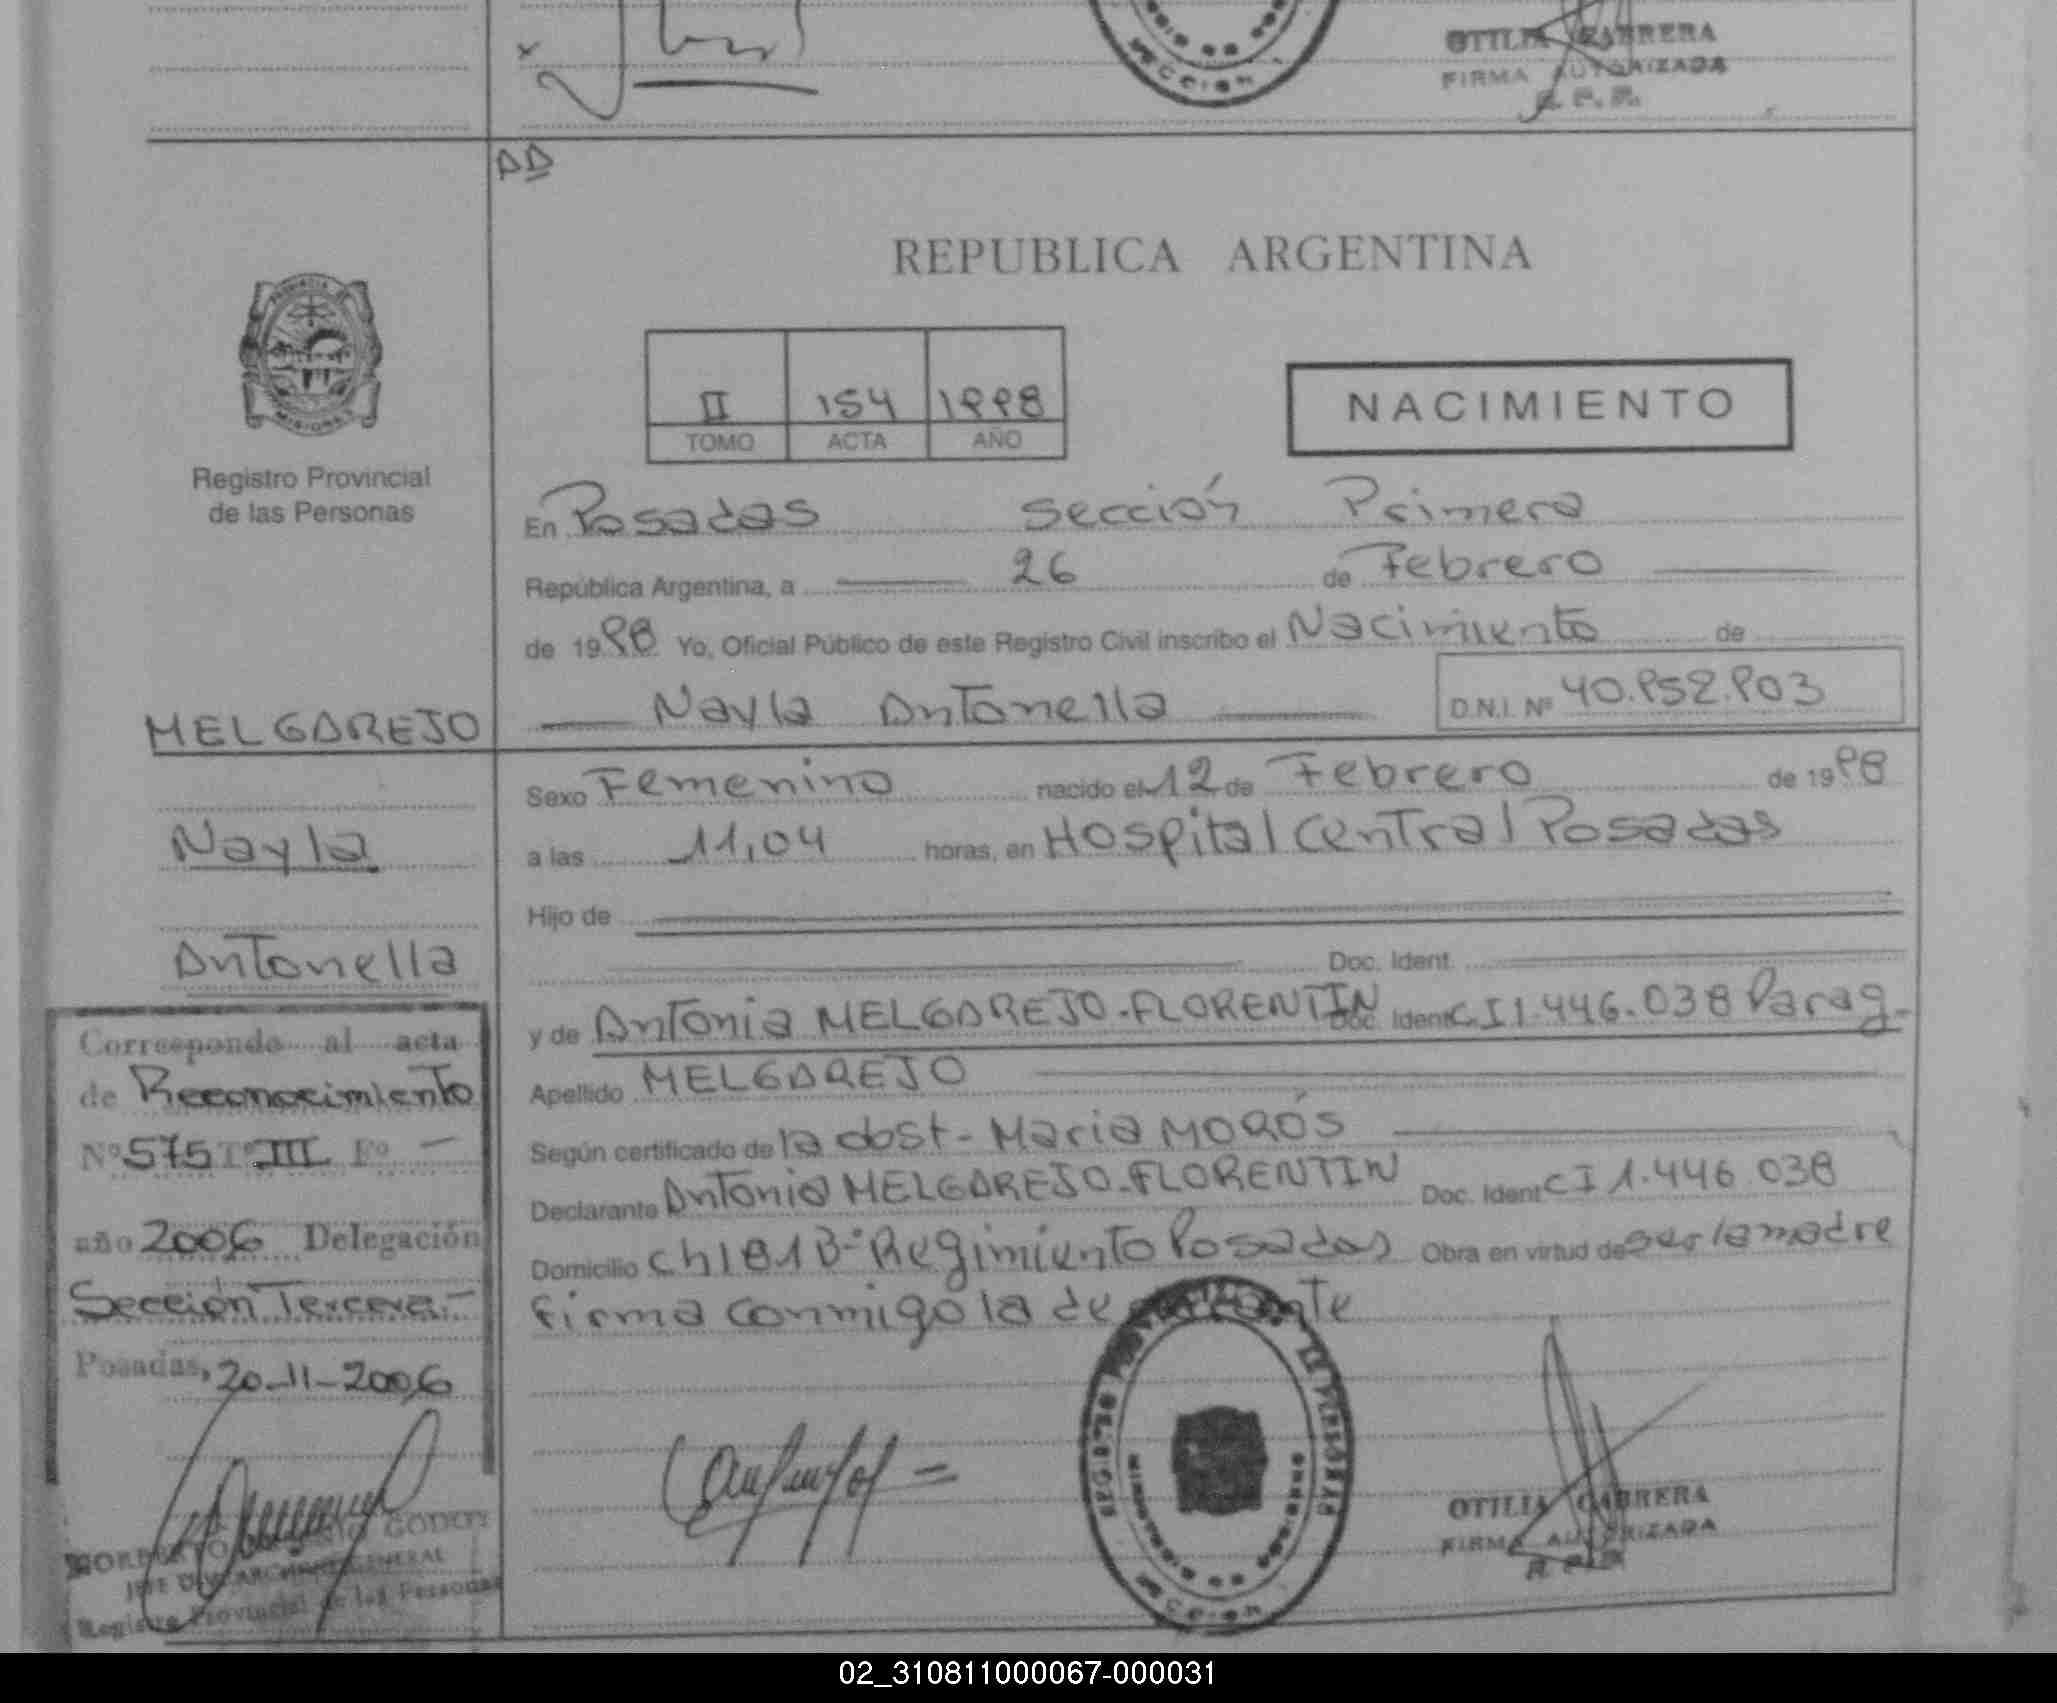 OTILIA CABRERA
FIRMA AUTORIZADA
R. P. P.
REPUBLICA ARGENTINA
PROVINCIA DE
MISIONES
II 154 1998
TOMO ACTA AÑO
NACIMIENTO
Registro Provincial
de las Personas
En Posadas Sección Primera
República Argentina, a 26 de Febrero
de 1998 Yo, Oficial Público de este Registro Civil inscribo el Nacimiento de
Nayla Antonella D.N.I. Nº 40.952.903
MELGAREJO
Nayla
Antonella
Sexo Femenino nacido el 12 de Febrero de 1998
a las 11,04 horas, en Hospital Central Posadas
Hijo de
Doc. Ident.
y de Antonia MELGAREJO-FLORENTIN Doc. Ident CI 1.446.038 Parag.
Apellido MELGAREJO
Según certificado de la obst- Maria MOROS
Declarante Antonia MELGAREJO-FLORENTIN Doc. Ident CI 1.446.038
Domicilio Ch181 Bº Regimiento Posadas Obra en virtud de ser la madre
firma conmigo la declarante
Corresponde al acta
de Reconocimiento
Nº 575 Tº III Fº -
año 2006 Delegación
Sección Tercera.-
Posadas, 20-11-2006
GODOY
ARCHIVO GENERAL
Registro Provincial de las Personas
OTILIA CABRERA
FIRMA AUTORIZADA
R. P. P.
02_310811000067-000031